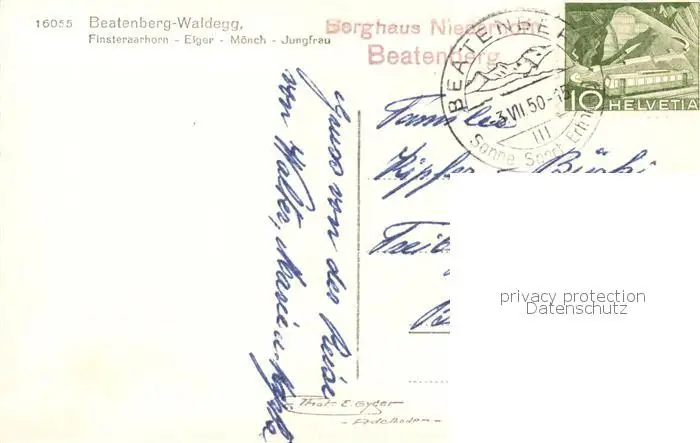 16055 Beatenberg-Waldegg,
Finsteraarhorn - Eiger - Mönch - Jungfrau
Berghaus Niederhorn
Beatenberg
BEATENBERG
-3.VII.50.-15
III
Sonne Sport
10 HELVETIA
Familie
Küpfer - Bürki
Frei
Gruss von der Reise
von Walter, Marie u.
Phot. E. Gyger
- Adelboden -
privacy protection
Datenschutz